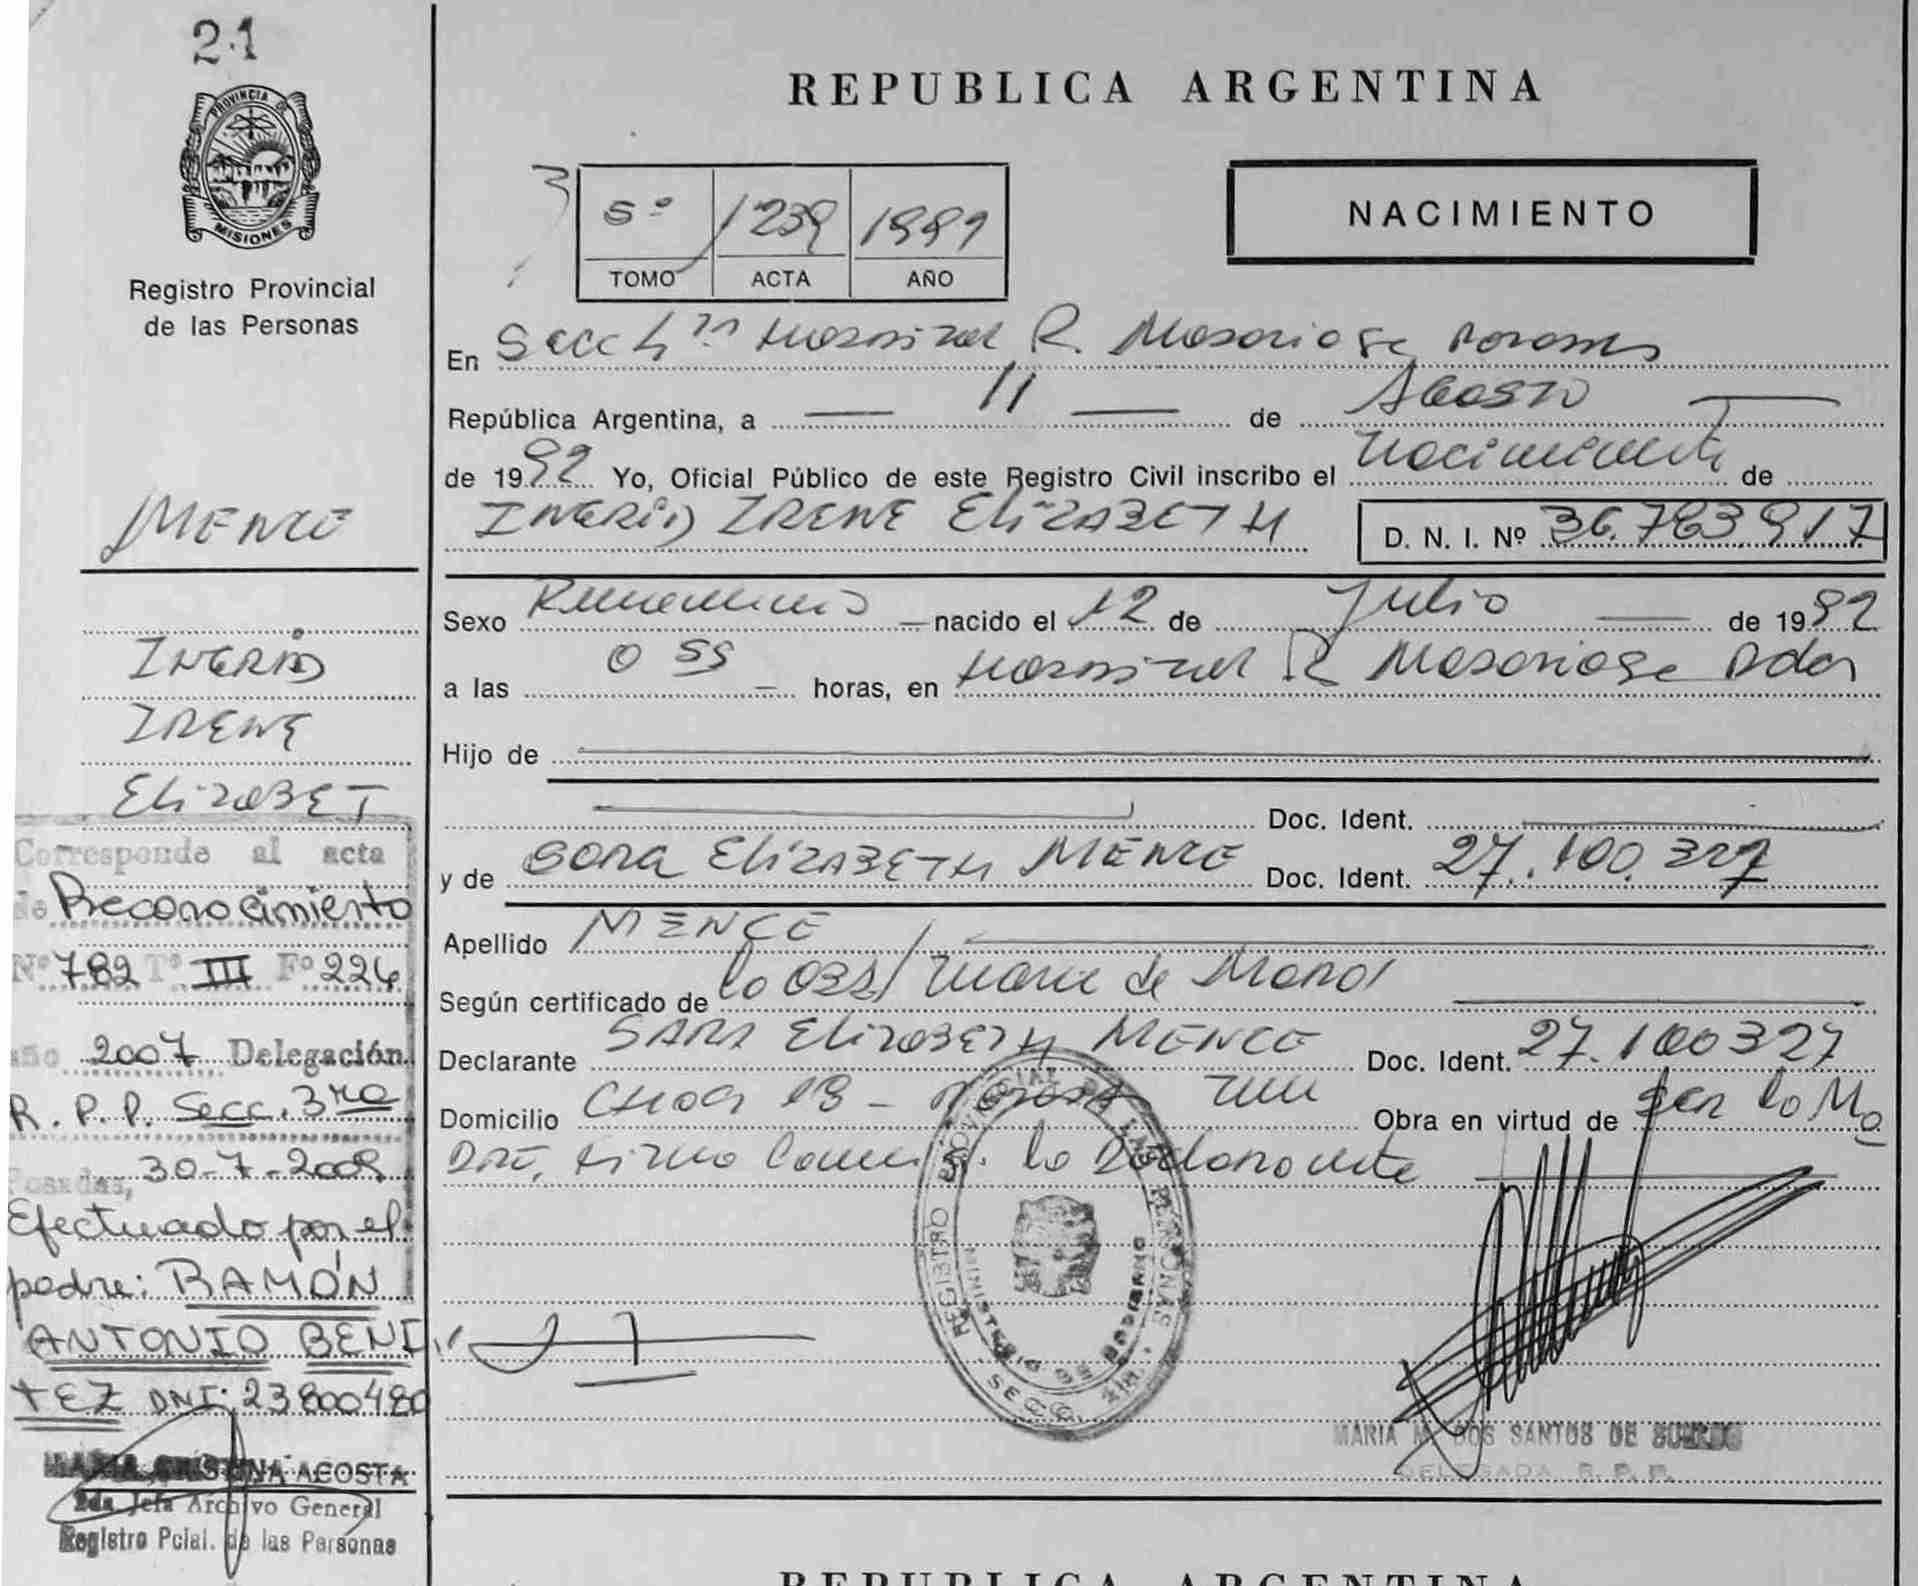 21
PROVINCIA DE
MISIONES
Registro Provincial
de las Personas
MENCE
INGRID
IRENE
ELIZABET
Corresponde al acta
de Reconocimiento
Nº 782 Tº III Fº 224
año 2007 Delegación
R. P. P. Secc. 3ra
Posadas, 30-7-2009
Efectuado por el
padre: RAMÓN
ANTONIO BENI
TEZ DNI: 23800480
MARIA CRISTINA ACOSTA
2da Jefa Archivo General
Registro Pcial. de las Personas
REPUBLICA ARGENTINA
5º 1239 1992
TOMO ACTA AÑO
NACIMIENTO
En Secc 4ta Hospital R. Madariaga Posadas
República Argentina, a 11 de Agosto
de 1992 Yo, Oficial Público de este Registro Civil inscribo el nacimiento de
INGRID IRENE ELIZABETH D. N. I. Nº 36.783.917
Sexo Femenino nacido el 12 de Julio de 1992
a las 0 55 horas, en Hospital R Madariaga Pdas
Hijo de
Doc. Ident.
y de SARA ELIZABETH MENCE Doc. Ident. 27.100.327
Apellido MENCE
Según certificado de la Obst/
Declarante SARA ELIZABETH MENCE Doc. Ident. 27.100327
Domicilio Chacra 18 - Obra en virtud de ser la Ma
dre, firma la Declarante
REGISTRO PROVINCIAL DE LAS PERSONAS
MINISTERIO DE GOBIERNO
SECC.
MARIA M. DOS SANTOS DE
DELEGADA R. P. P.
REPUBLICA ARGENTINA